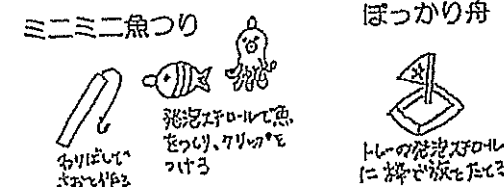 ミニミニ魚つり
わりばしで
さおを作る
発泡スチロールで魚
をつくり、クリップを
つける
ぽっかり舟
トレーの発泡スチロール
に棒で旗をたてる